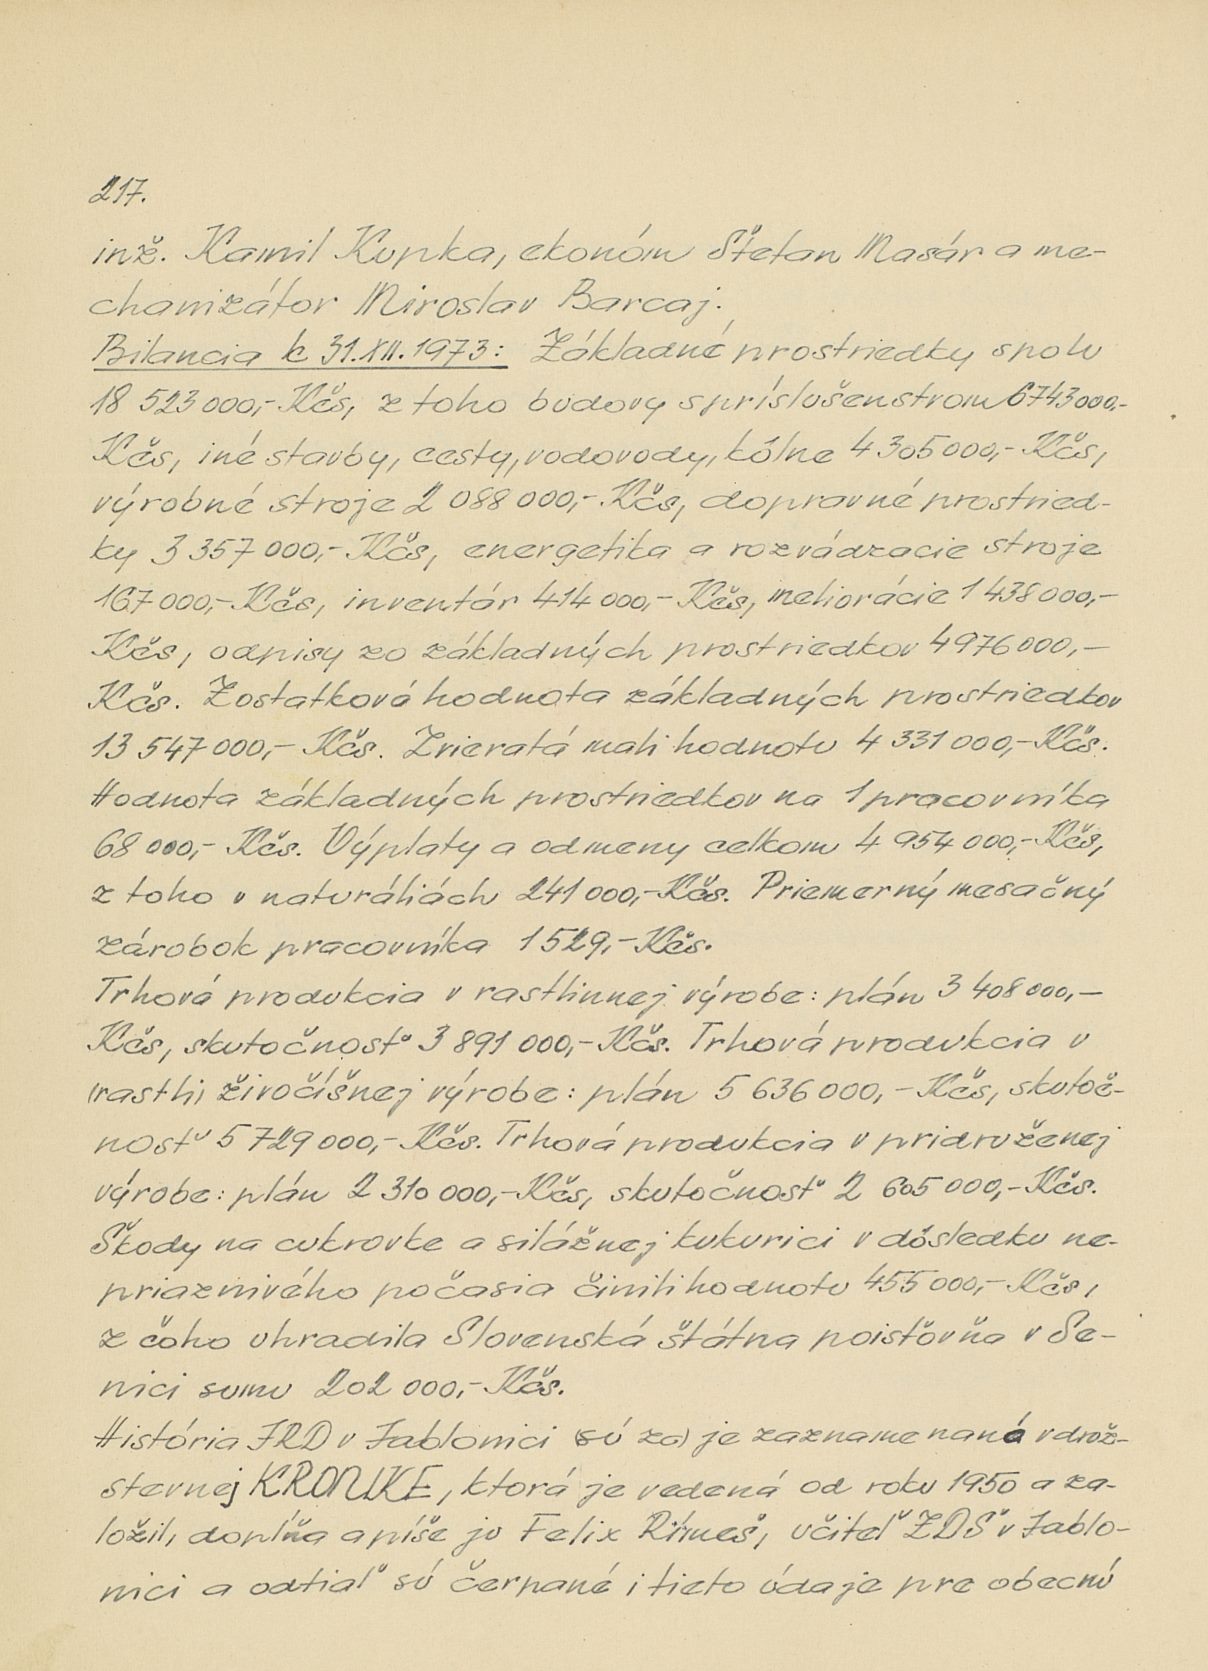 217.
inž. Kamil Kupka, ekonóm Štefan Masár a me-
chanizátor Miroslav Barcaj.
Bilancia k 31.XII.1973: Základné prostriedky spolu
18 523 000,- Kčs, z toho budovy s príslušenstvom 6743000,-
Kčs, iné stavby, cesty, vodovody, kôlne 4 305000,- Kčs,
výrobné stroje 2 088 000,- Kčs, dopravné prostried-
ky 3 357 000,- Kčs, energetika a rozvádzacie stroje
167 000,- Kčs, inventár 414 000,- Kčs, meliorácie 1 438 000,-
Kčs, odpisy zo základných prostriedkov 4976000,-
Kčs. Zostatková hodnota základných prostriedkov
13 547 000,- Kčs. Zvieratá mali hodnotu 4 331 000,- Kčs.
Hodnota základných prostriedkov na 1 pracovníka
68 000,- Kčs. Výplaty a odmeny celkom 4 954 000,- Kčs,
z toho v naturáliách 241 000,- Kčs. Priemerný mesačný
zárobok pracovníka 1 529,- Kčs.
Trhová produkcia v rastlinnej výrobe: plán 3 408 000,-
Kčs, skutočnosť 3 891 000,- Kčs. Trhová produkcia v
(rastli) živočíšnej výrobe: plán 5 636 000,- Kčs, skutoč-
nosť 5 729 000,- Kčs. Trhová produkcia v pridruženej
výrobe: plán 2 310 000,- Kčs, skutočnosť 2 605 000,- Kčs.
Škody na cukrovke a silážnej kukurici v dôsledku ne-
priaznivého počasia činili hodnotu 455 000,- Kčs,
z čoho uhradila Slovenská štátna poisťovňa v Se-
nici sumu 202 000,- Kčs.
História JRD v Jablonici (sú za) je zaznamenaná v druž-
stevnej KRONIKE, ktorá je vedená od roku 1950 a za-
ložil, doplňa a píše ju Felix Rímeš, učiteľ ZDŠ v Jablo-
nici a odtiaľ sú čerpané i tieto údaje pre obecnú